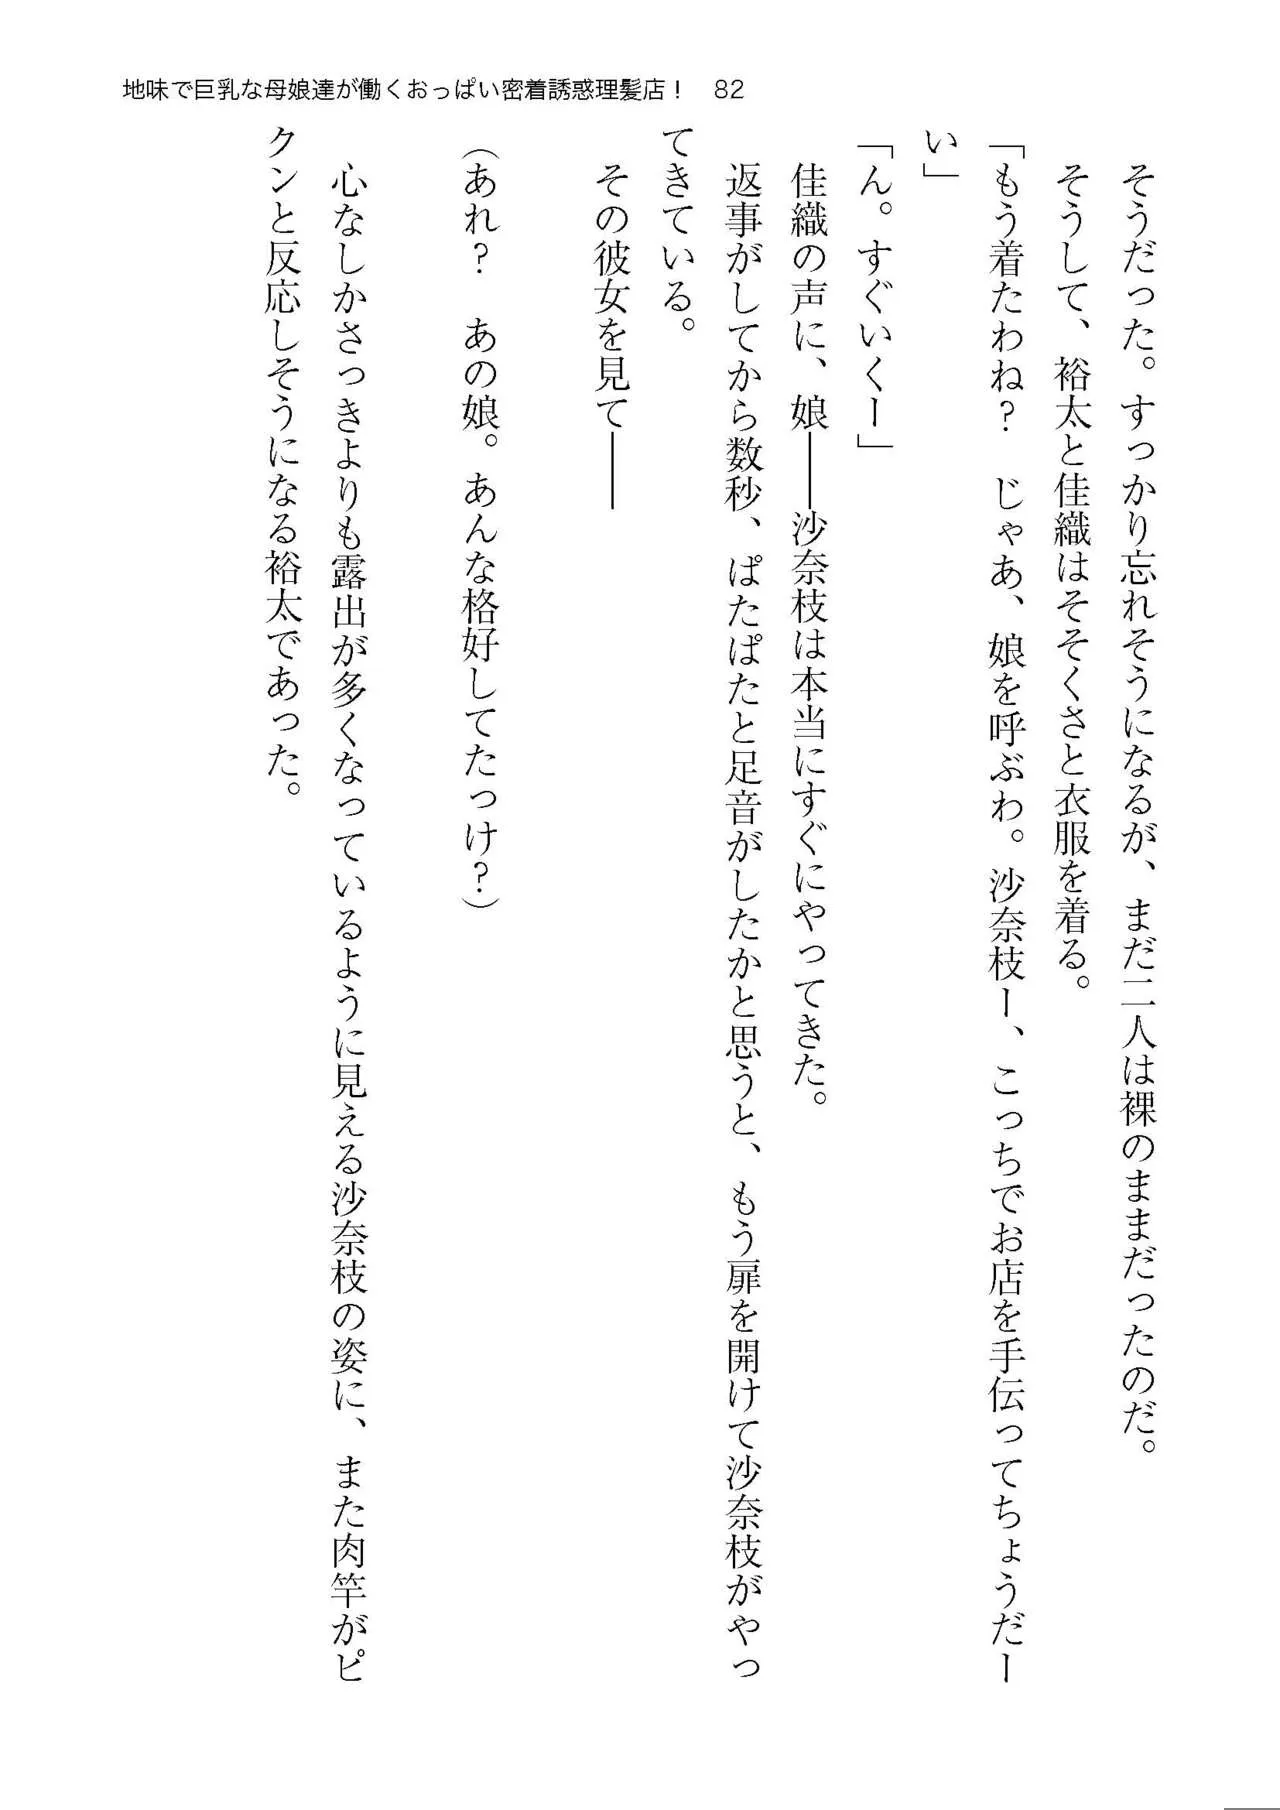 地味で巨乳な母娘達が働くおっぱい密着誘惑理髪店! 82
そうだった。すっかり忘れそうになるが、まだ二人は裸のままだったのだ。
そうして、裕太と佳織はそそくさと衣服を着る。
「もう着たわね? じゃあ、娘を呼ぶわ。沙奈枝ー、こっちでお店を手伝ってちょうだー
い」
「ん。すぐいくー」
佳織の声に、娘――沙奈枝は本当にすぐにやってきた。
返事がしてから数秒、ぱたぱたと足音がしたかと思うと、もう扉を開けて沙奈枝がやっ
てきている。
その彼女を見て――
(あれ? あの娘。あんな格好してたっけ?)
心なしかさっきよりも露出が多くなっているように見える沙奈枝の姿に、また肉竿がピ
クンと反応しそうになる裕太であった。